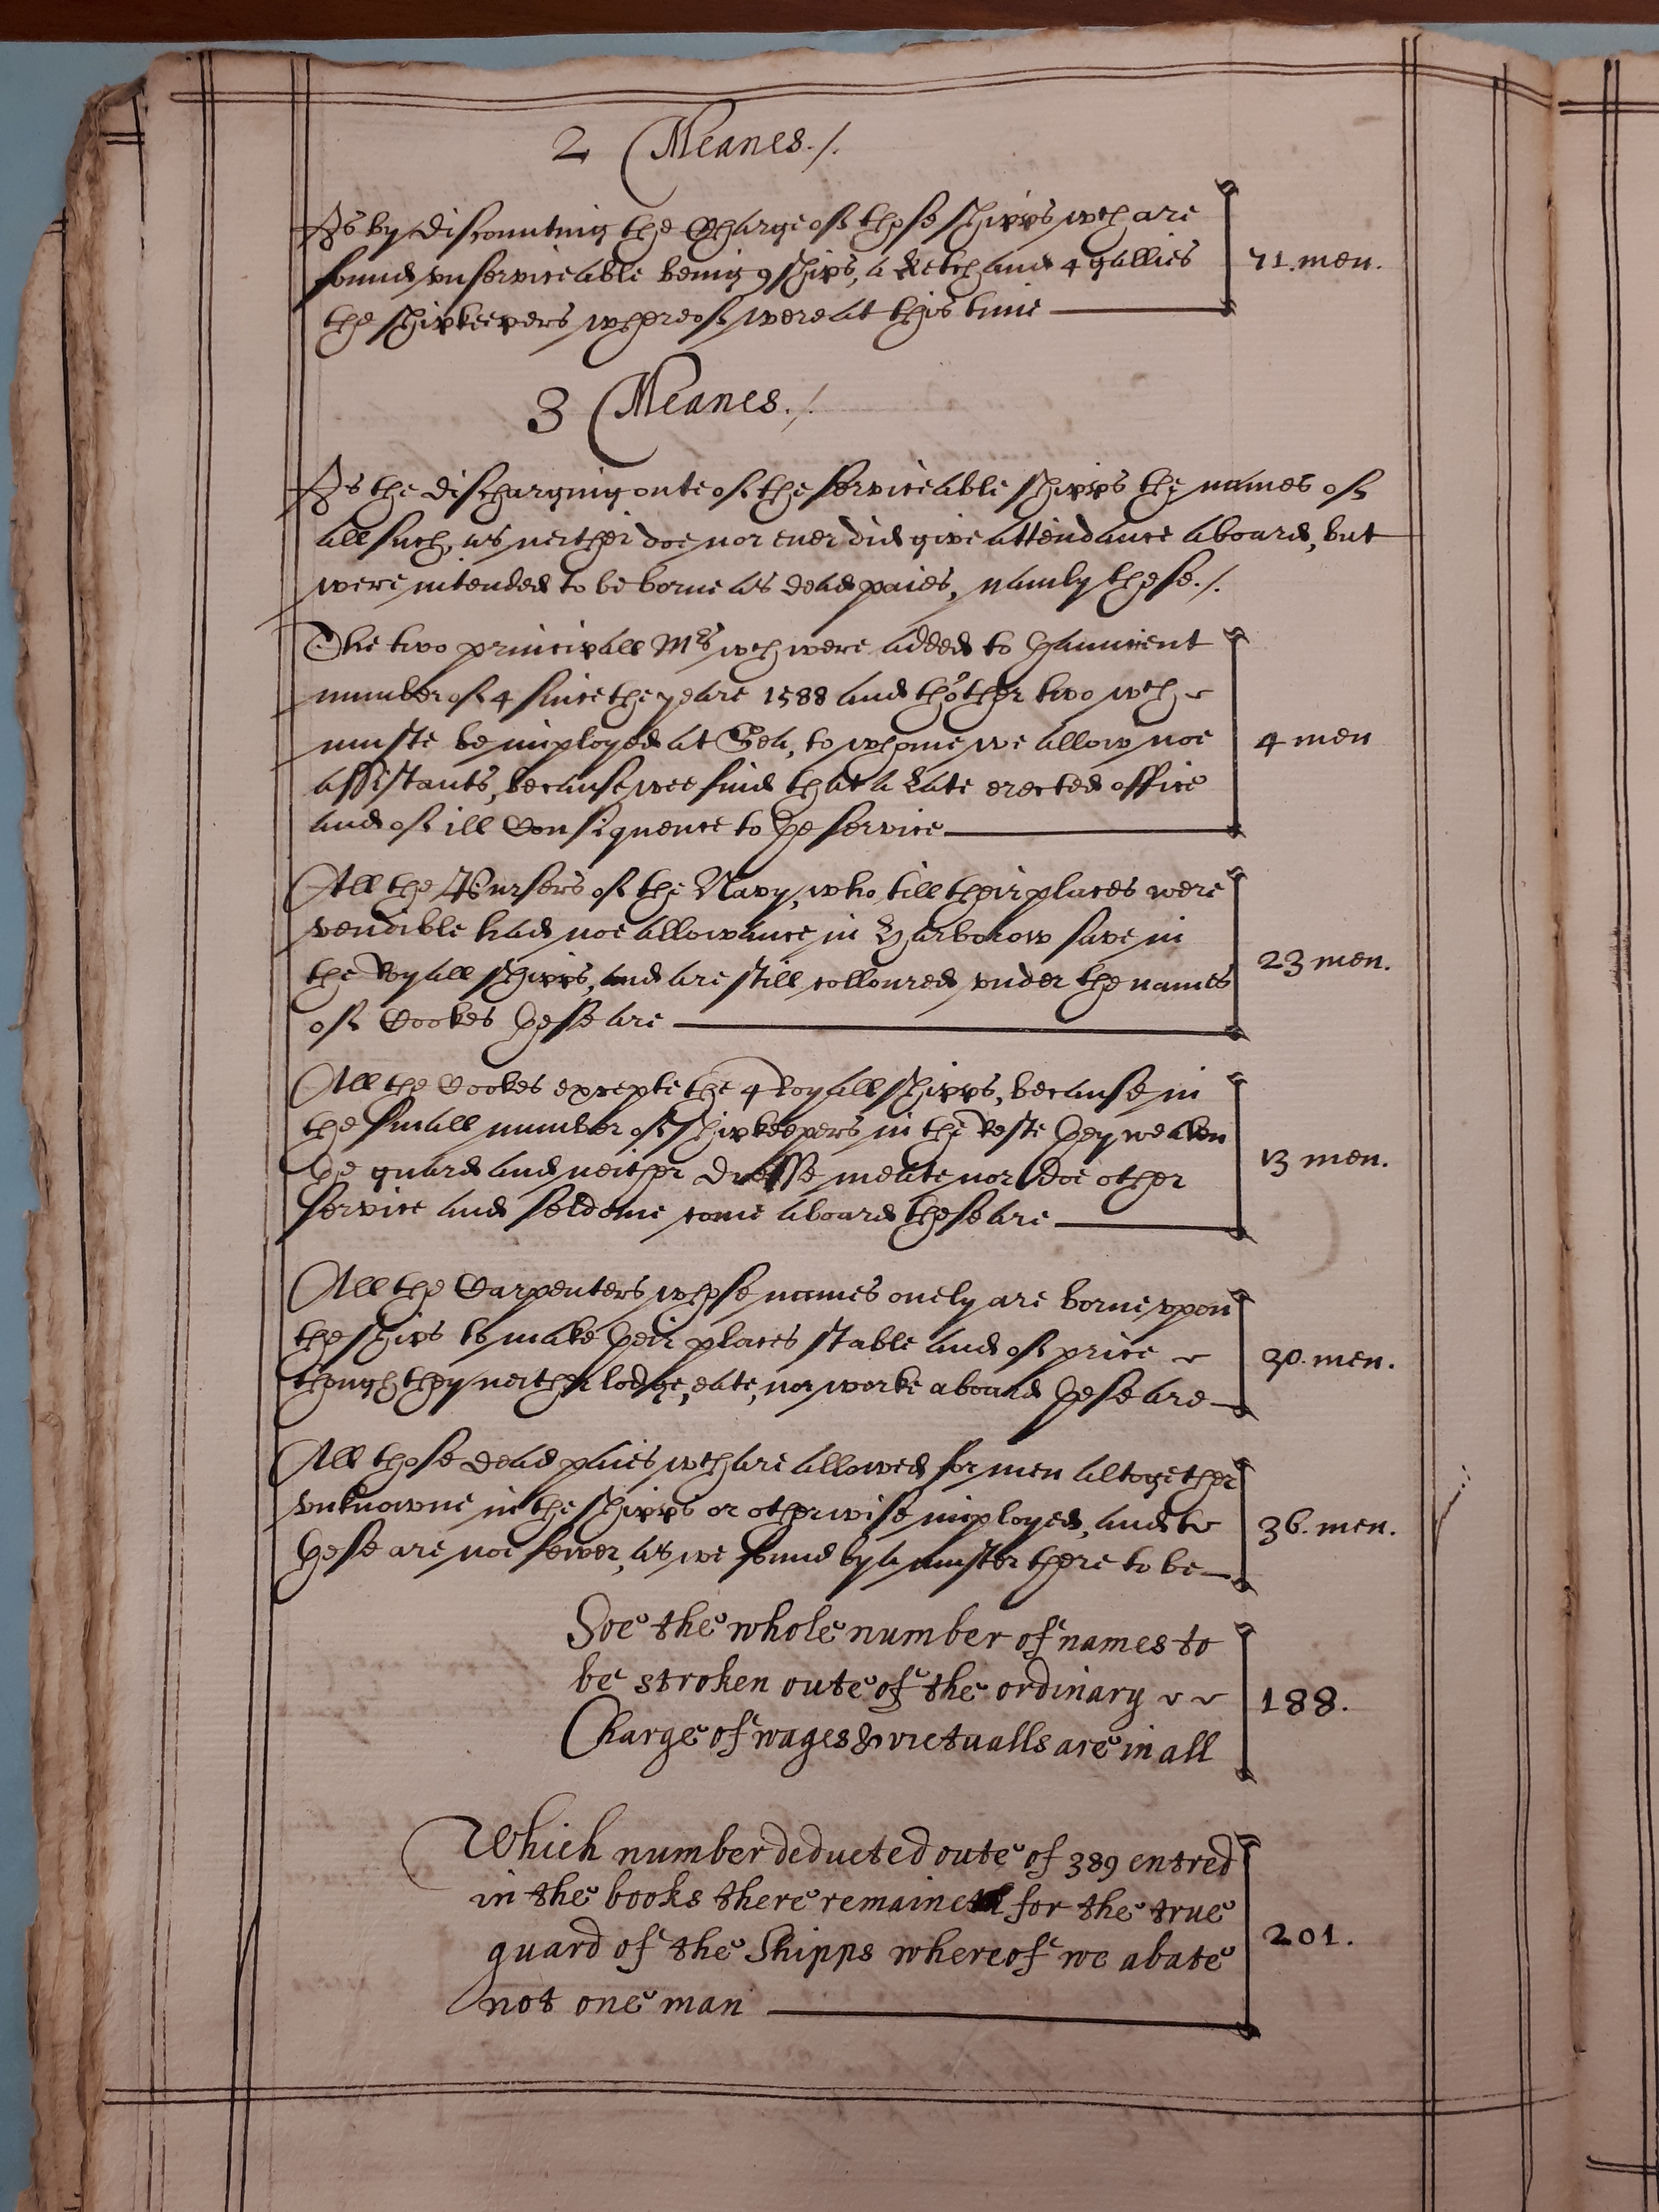 2 Meanes./.
As by discounting the Charge of those shipps wch are
found vnserviceable being 9 ships, a Ketch and 4 gallies
the shipkeepers whereof were at this time
71. men.
3 Meanes./.
As the discharging oute of the serviceable shipps the names of
all such, as neither doe nor ever did give attendance aboard, but
were intended to be borne as dead paies, namly these./.
The two principall Mrs wch were added to thauncient
number of 4 since the yeare 1588 and thother two wch
muste be imployed at Sea, to whome we allow noe
assistants, because wee find that a late erected office
and of ill Consequence to þe service
4 men
All the Pursers of the Navy, who till their places were
vendible had noe allowance in Harborow save in
the Ryall shipps, and are still colloured vnder the names
of Cookes þese are
23 men.
All the Cookes excepte the 4 Royall shipps, because in
the small number of shipkeepers in the Reste þey weaken
þe guard and neither dresse meate nor doe other
service and seldome come aboard these are
13 men.
All the Carpenters whose names onely are borne vpon
the ships to make þeir places stable and of price
though they neither lodge, eate, nor worke aboard þese are
30. men.
All those dead paies wch are allowed for men altogether
vnknowne in the shipps or otherwise imployed, and
þese are noe fewer, as we found by a muster there to be
36. men.
Soe the whole number of names to
be stroken oute of the ordinary
Charge of wages & victualls are in all
188.
Which number deducted oute of 389 entred
in the books there remaineth for the true
guard of the Shipps whereof we abate
not one man
201.